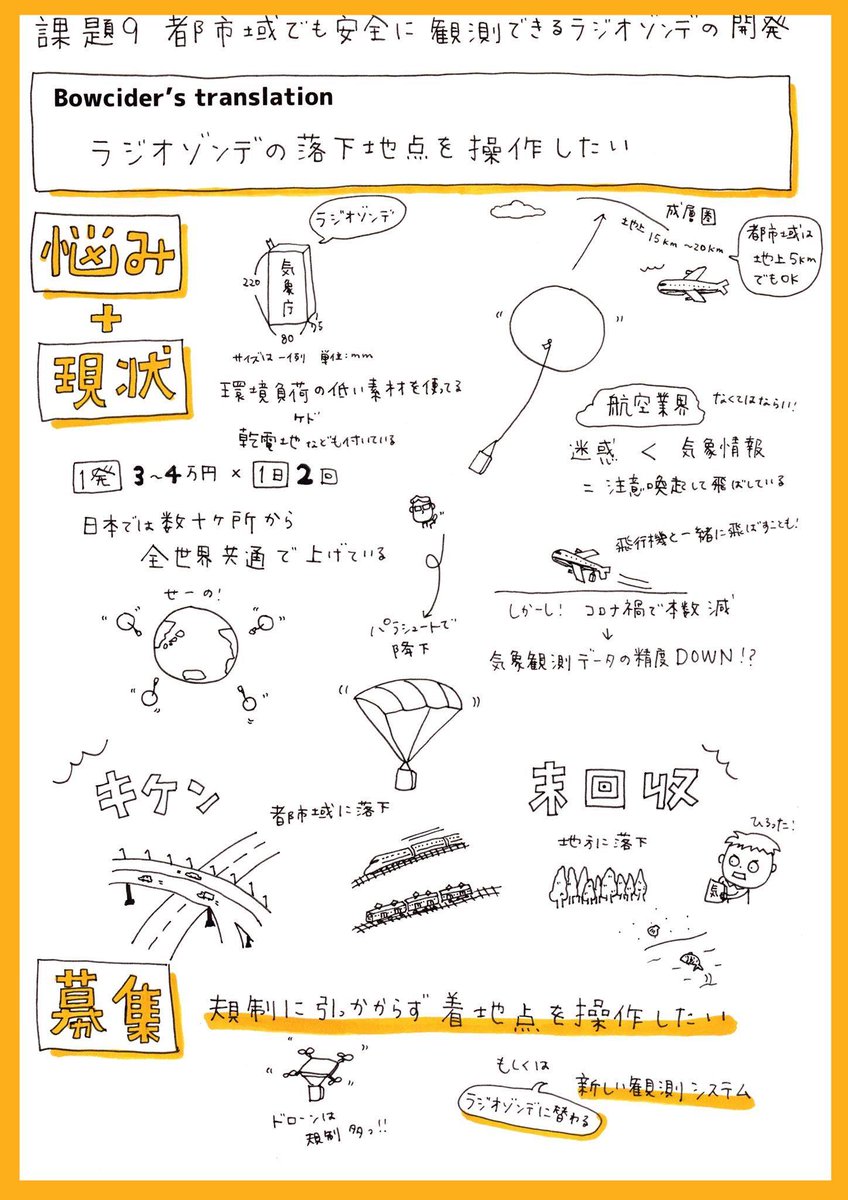 課題9 都市域でも安全に観測できるラジオゾンデの開発
Bowcider's translation
ラジオゾンデの落下地点を操作したい
悩み
+
現状
ラジオゾンデ
気象庁
220
80
75
サイズは一例 単位:mm
環境負荷の低い素材を使ってる
ケド
乾電池なども付いている
1発 3~4万円 × 1日 2回
日本では数十ヶ所から
全世界共通で上げている
せーの!
成層圏
地上 15km~20km
都市域は
地上5km
でもOK
航空業界
なくてはならい!
迷惑 < 気象情報
= 注意喚起して飛ばしている
飛行機と一緒に飛ばすことも!
しかーし! コロナ禍で本数減
↓
気象観測データの精度DOWN!?
パラシュートで
降下
キケン
都市域に落下
未回収
地方に落下
ひろった!
気
募集
規制に引っかからず着地点を操作したい
ドローンは
規制多っ!!
もしくは
ラジオゾンデに替わる
新しい観測システム